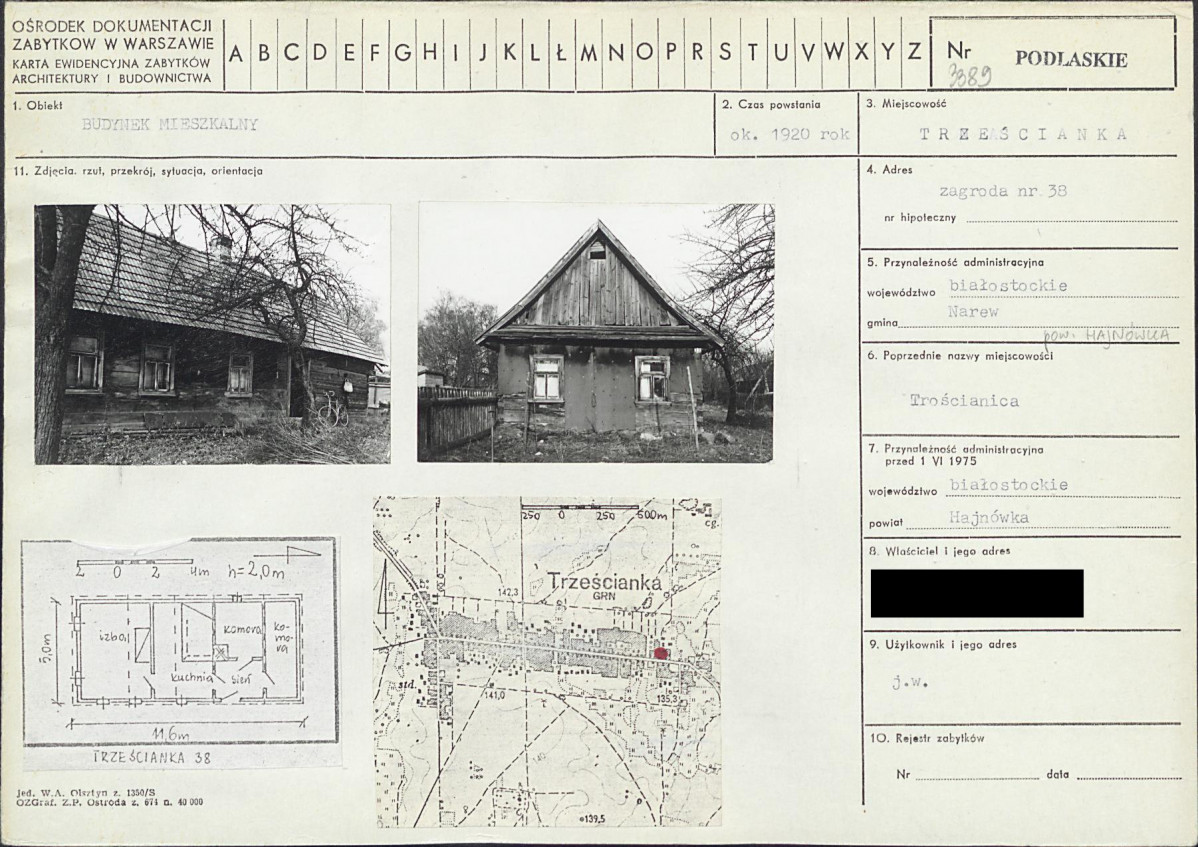 OŚRODEK DOKUMENTACJI
ZABYTKOW W WARSZAWIE
KARTA EWIDENCYJNA ZABYTKÓW
ARCHITEKTURY I BUDOWNICTWA
A B C D E F G H I J K L Ł M N O P R S T U V W X Y Z
Nr 3389 PODLASKIE
1. Obiekt
BUDYNEK MIESZKALNY
2. Czas powstania
ok. 1920 rok
3. Miejscowość
TRZEŚCIANKA
11. Zdjęcia. rzut, przekrój, sytuacja, orientacja
4. Adres
zagroda nr 38
nr hipoteczny
5. Przynależność administracyjna
województwo białostockie
gmina Narew
pow. HAJNÓWKA
6. Poprzednie nazwy miejscowości
Trościanica
7. Przynależność administracyjna
przed 1 VI 1975
województwo białostockie
powiat Hajnówka
8. Właściciel i jego adres
9. Użytkownik i jego adres
j.w.
10. Rejestr zabytków
Nr data
2 0 2 4m h=2,0m
izba
komora
ko-
mo-
ra
kuchnia
sień
5,0m
11,6m
TRZEŚCIANKA 38
250 0 250 500m
cg.
Trześcianka
GRN
142,3
std.
141,0
135,3
140
139,5
Jed. W.A. Olsztyn z. 1350/S
OZGraf. Z.P. Ostróda z. 674 n. 40 000